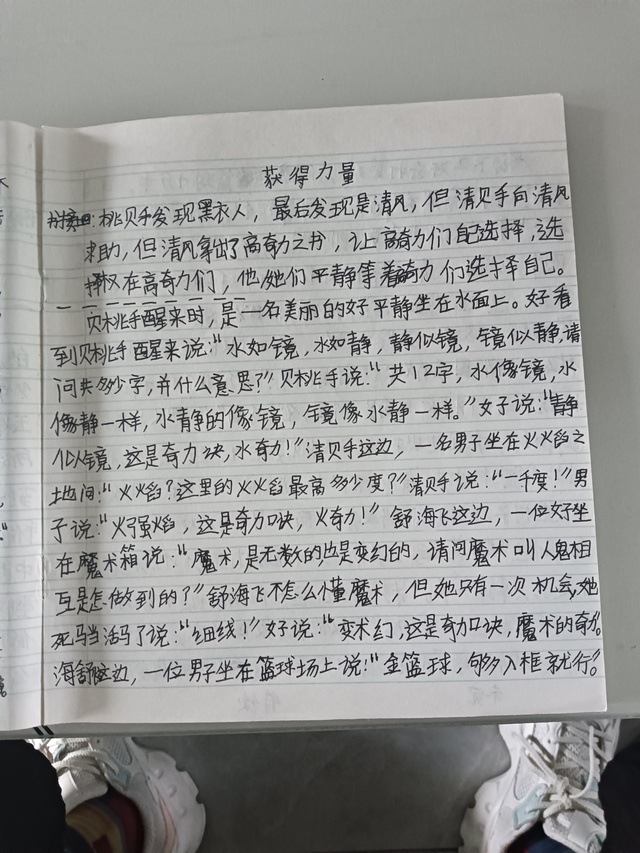 获得力量
桃贝手发现黑衣人，最后发现是清风，但清贝手向清风
求助，但清风拿出了高奇力之书，让高奇力们自己选择，选
择权在高奇力们，他/她们平静等着奇力们选择自己。
贝桃手醒来时，是一名美丽的好平静坐在水面上。好看
到贝桃手醒来说：“水如镜，水如静，静似镜，镜似静，请
问共多少字，并什么意思？”贝桃手说：“共12字，水像镜，水
像静一样，水静的像镜，镜像水静一样。”女子说：“静
似镜，这是奇力诀，水奇力！”清贝手这边，一名男子坐在火焰之
地间：“火焰？这里的火焰最高多少度？”清贝手说：“一千度！”男
子说：“火强焰，这是奇力口诀，火奇力！”舒海飞这边，一位好坐
在魔术箱说：“魔术，是无数的也是变幻的，请问魔术叫人鬼相
互是怎做到的？”舒海飞不怎么懂魔术，但她只有一次机会，她
死马当活马了说：“细线！”好说：“变术幻，这是奇力口诀，魔术的奇力。
海舒这边，一位男子坐在篮球场上说：“金篮球，够多入框就行。”